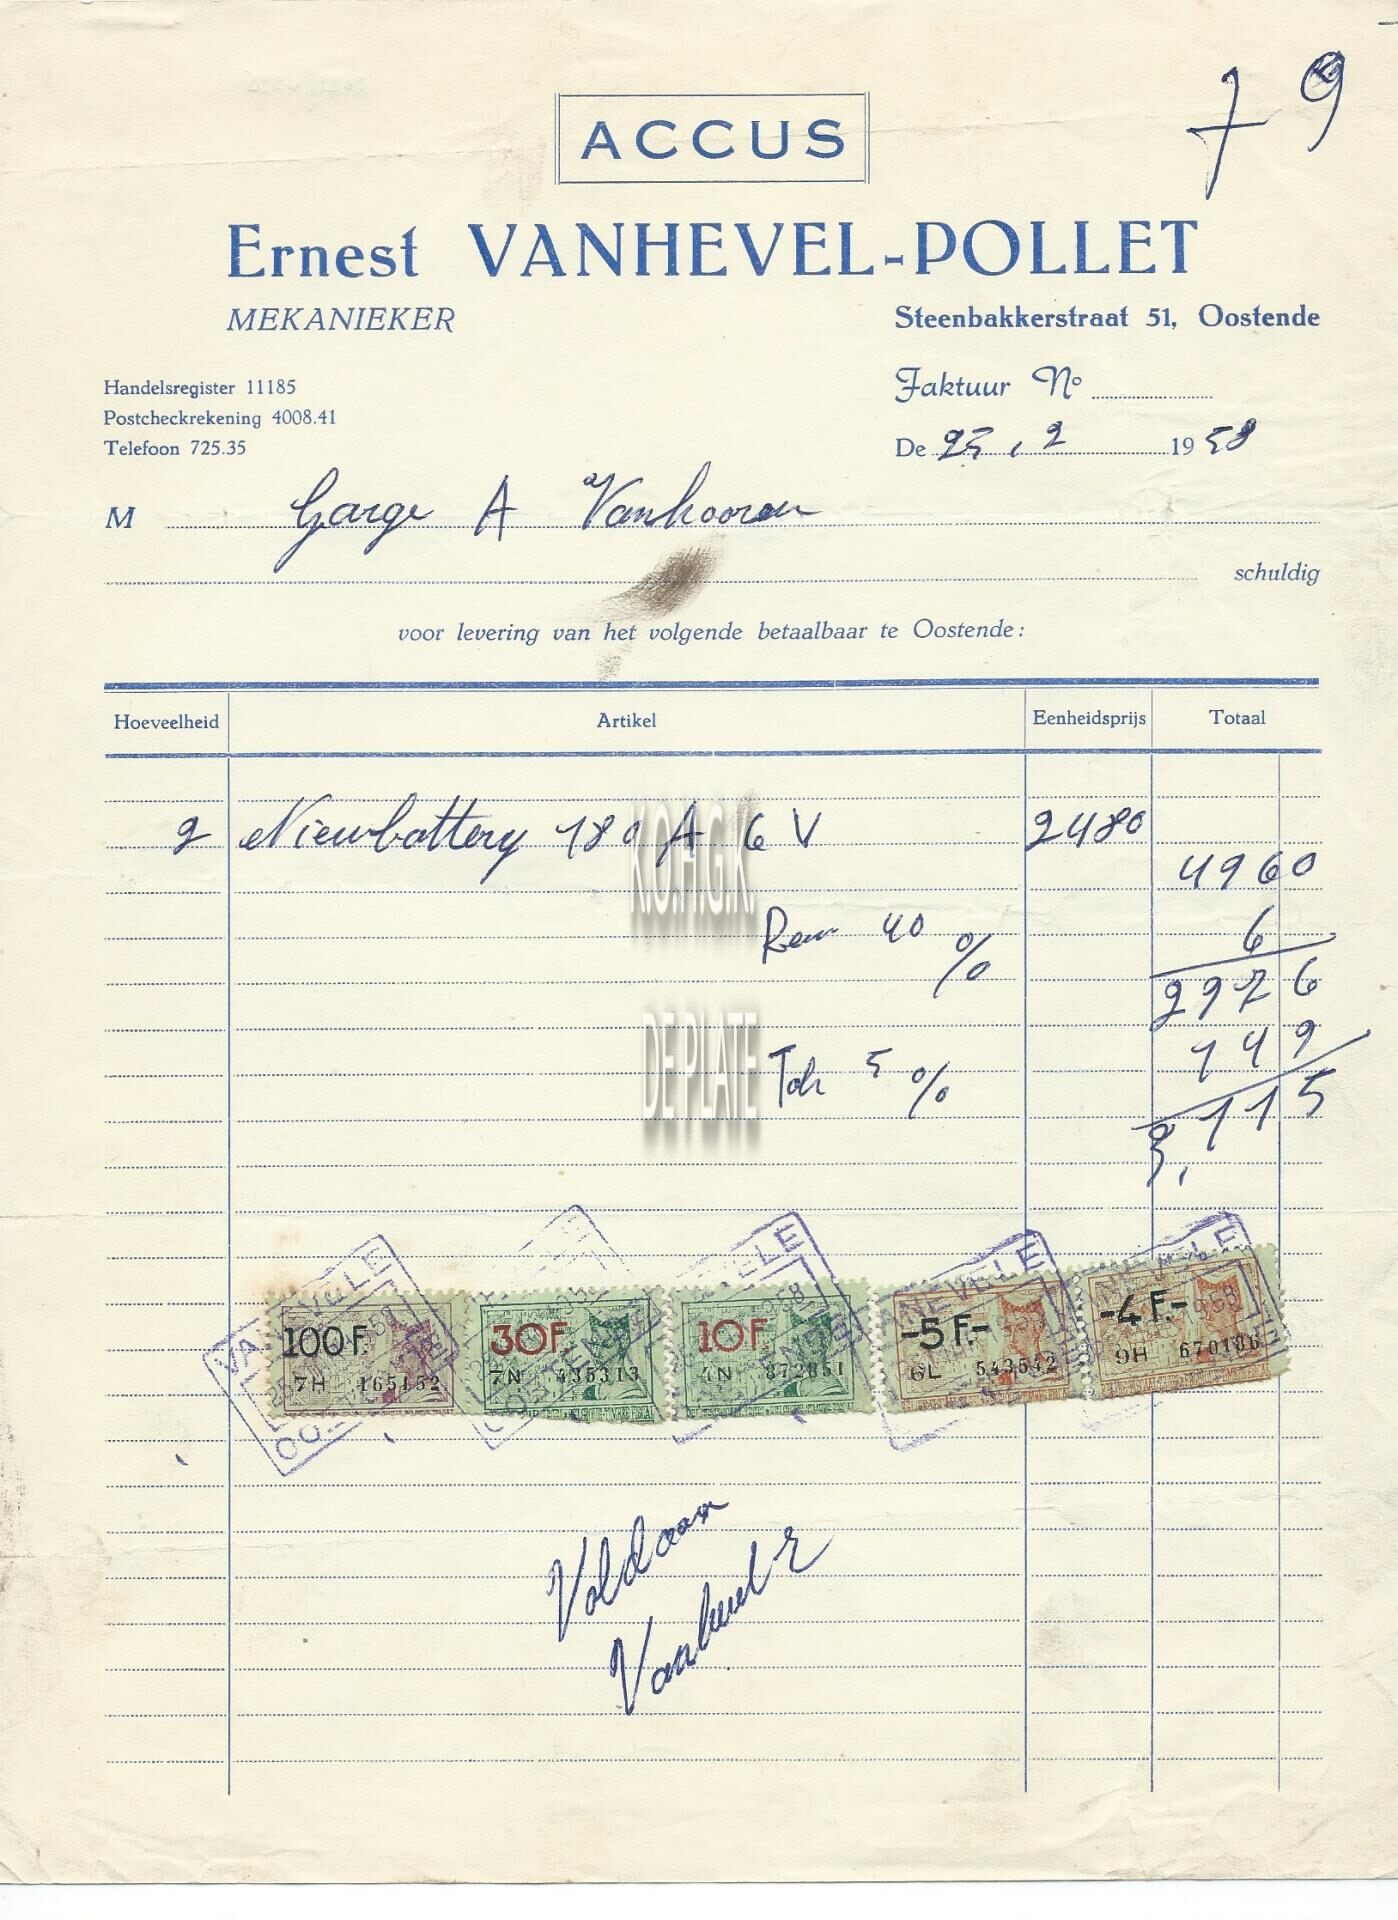 7 9
ACCUS
Ernest VANHEVEL-POLLET
MEKANIEKER
Steenbakkerstraat 51, Oostende
Handelsregister 11185
Postcheckrekening 4008.41
Telefoon 725.35
Faktuur No
De 25.2 1958
M Garge A Vanhooren
schuldig
voor levering van het volgende betaalbaar te Oostende:
Hoeveelheid Artikel Eenheidsprijs Totaal
2 Nieuwbattery 180 A 6 V 2480
4960
K.O.H.G.K.
Rem 40 % 6
2976
DE PLATE
149
Tah 5 %
3,115
100F. 30F. 10F. -5F.- -4F.-
7H 165152 7N 435313 872851 6L 543542 9H 670186
Voldaan
Vanhevel E